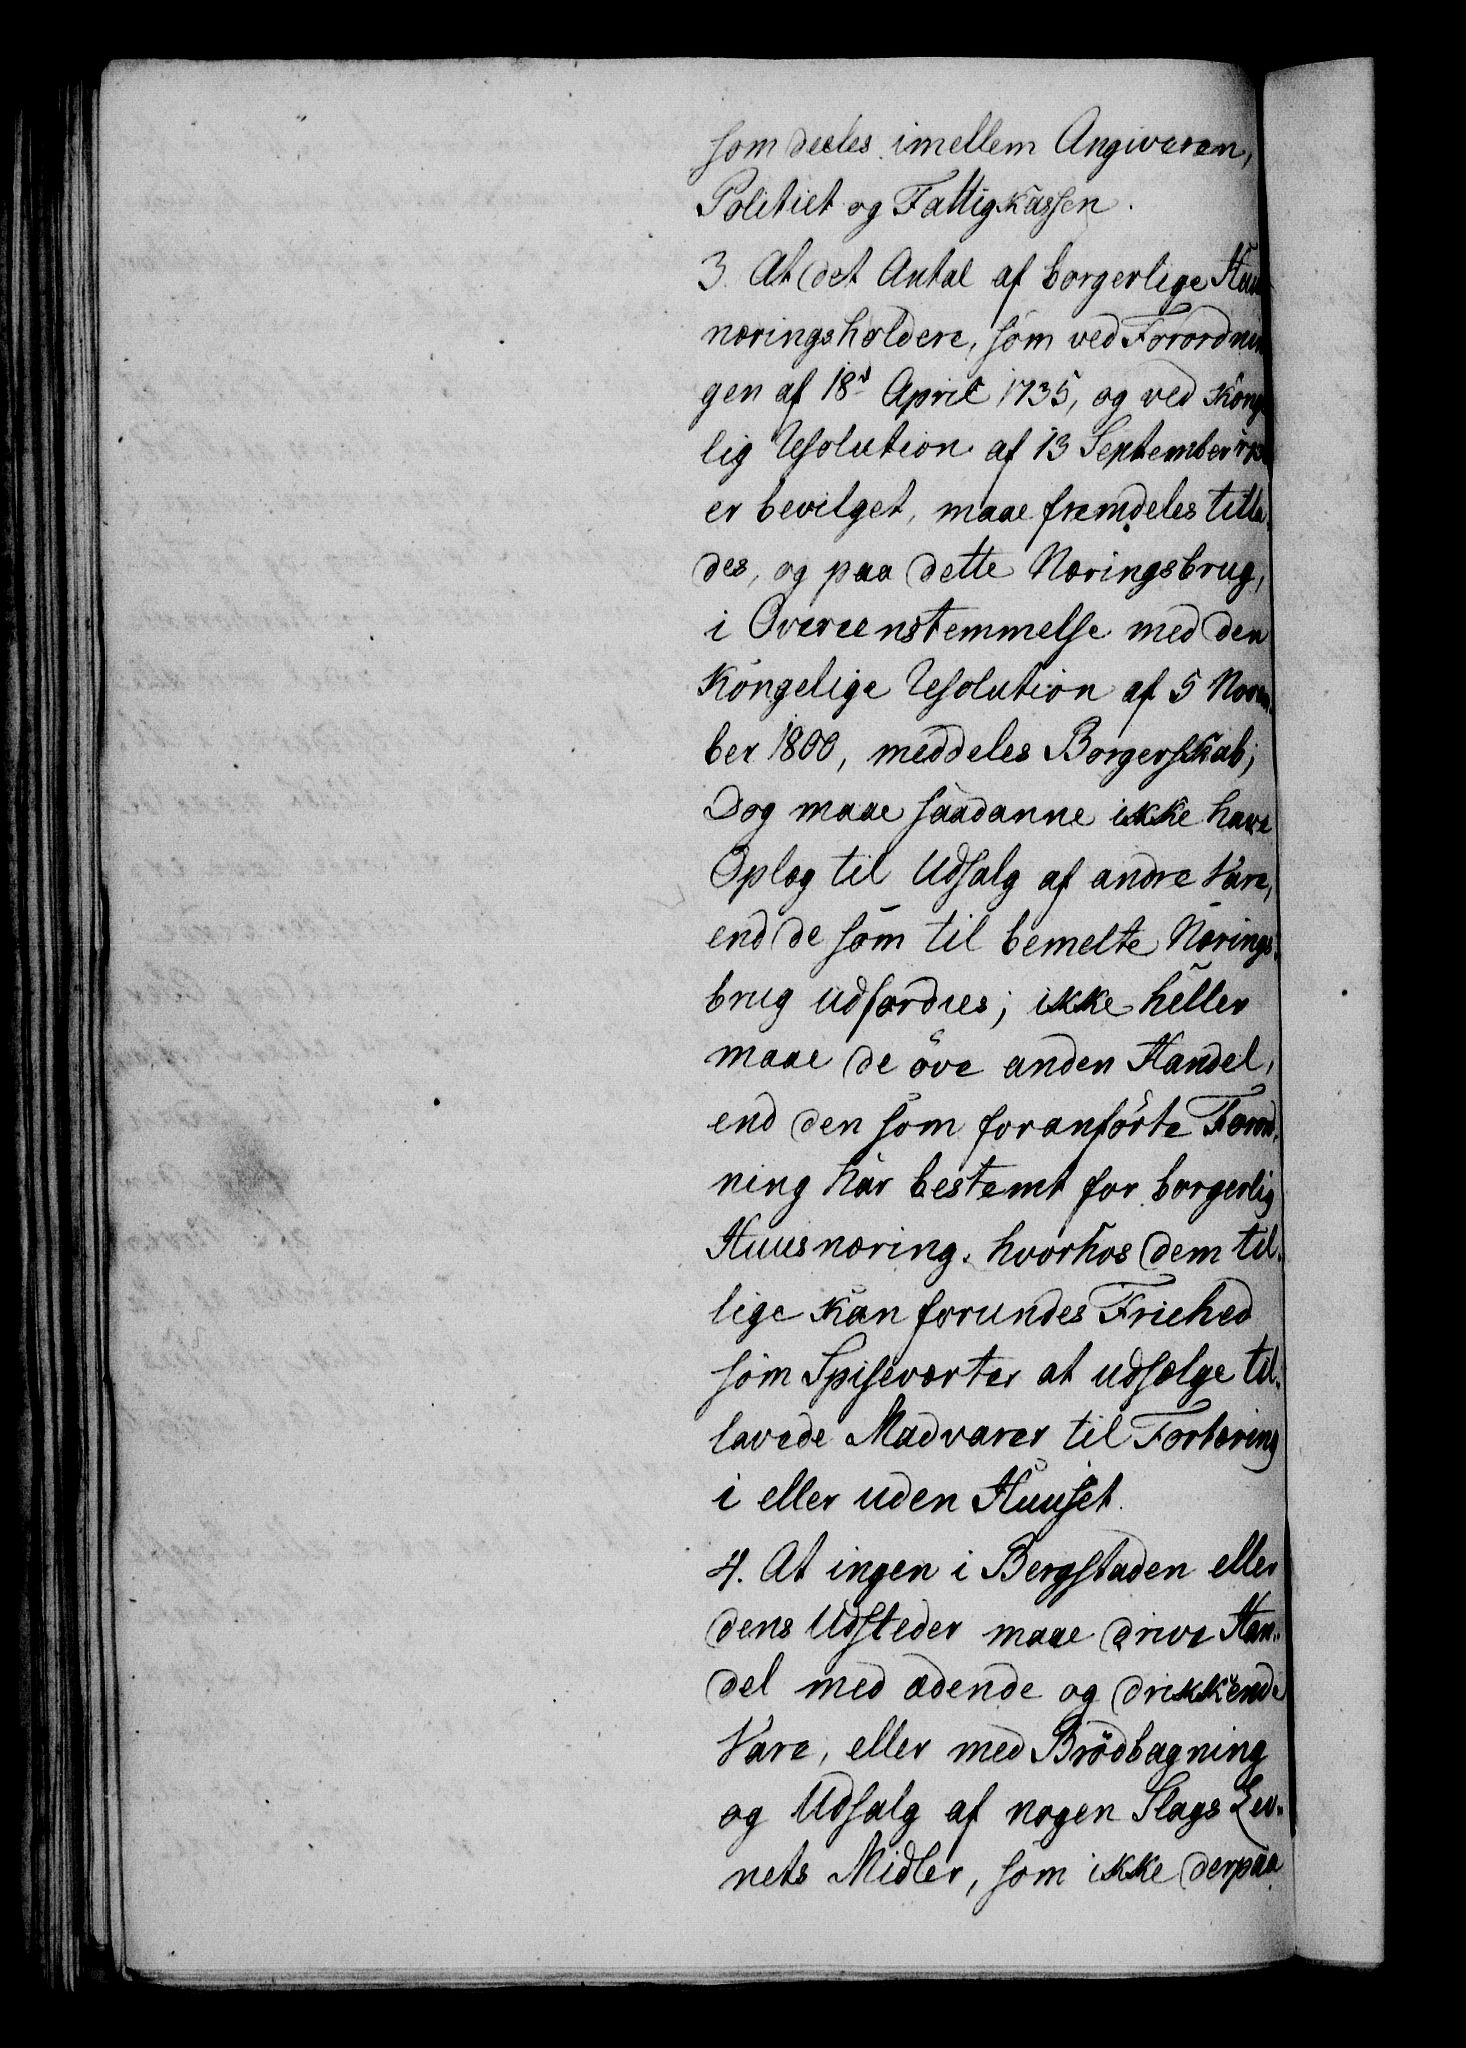 som deeles imellem Angiveren,
Politiet og Fattigkassen.
3. At det Antal af borgerlige
næringsholdere, som ved Forordnin
gen af 18d April 1735, og ved Konge
lig Resolution af 13 September
er bevilget, maae fremdeles tilla
des, og paa dette Næringsbrug,
i Overeenstemmelse med den
Kongelige Resolution af 5 Novem
ber 1800, meddeles Borgerskab;
Dog maae saadanne ikke have
Oplag til Udsalg af andre Vare,
end de som til bemelte Nærings
brug udfordres; ikke heller
maae de öve anden Handel,
end den som foranförte Forord
ning har bestemt for borgerlig
Huusnæring, hvorhos dem til
lige kan forundes Friehed
som Spiseværter at udsælge til
lavede Madvarer til Fortæring
i eller uden Huuset.
4. At ingen i Bergstaden eller
dens Udsteder maae drive Han
del med ædende og drikkende
Vare, eller med Brödbagning
og Udsalg af nogen Slags Lev
nets Midler, som ikke derpaa